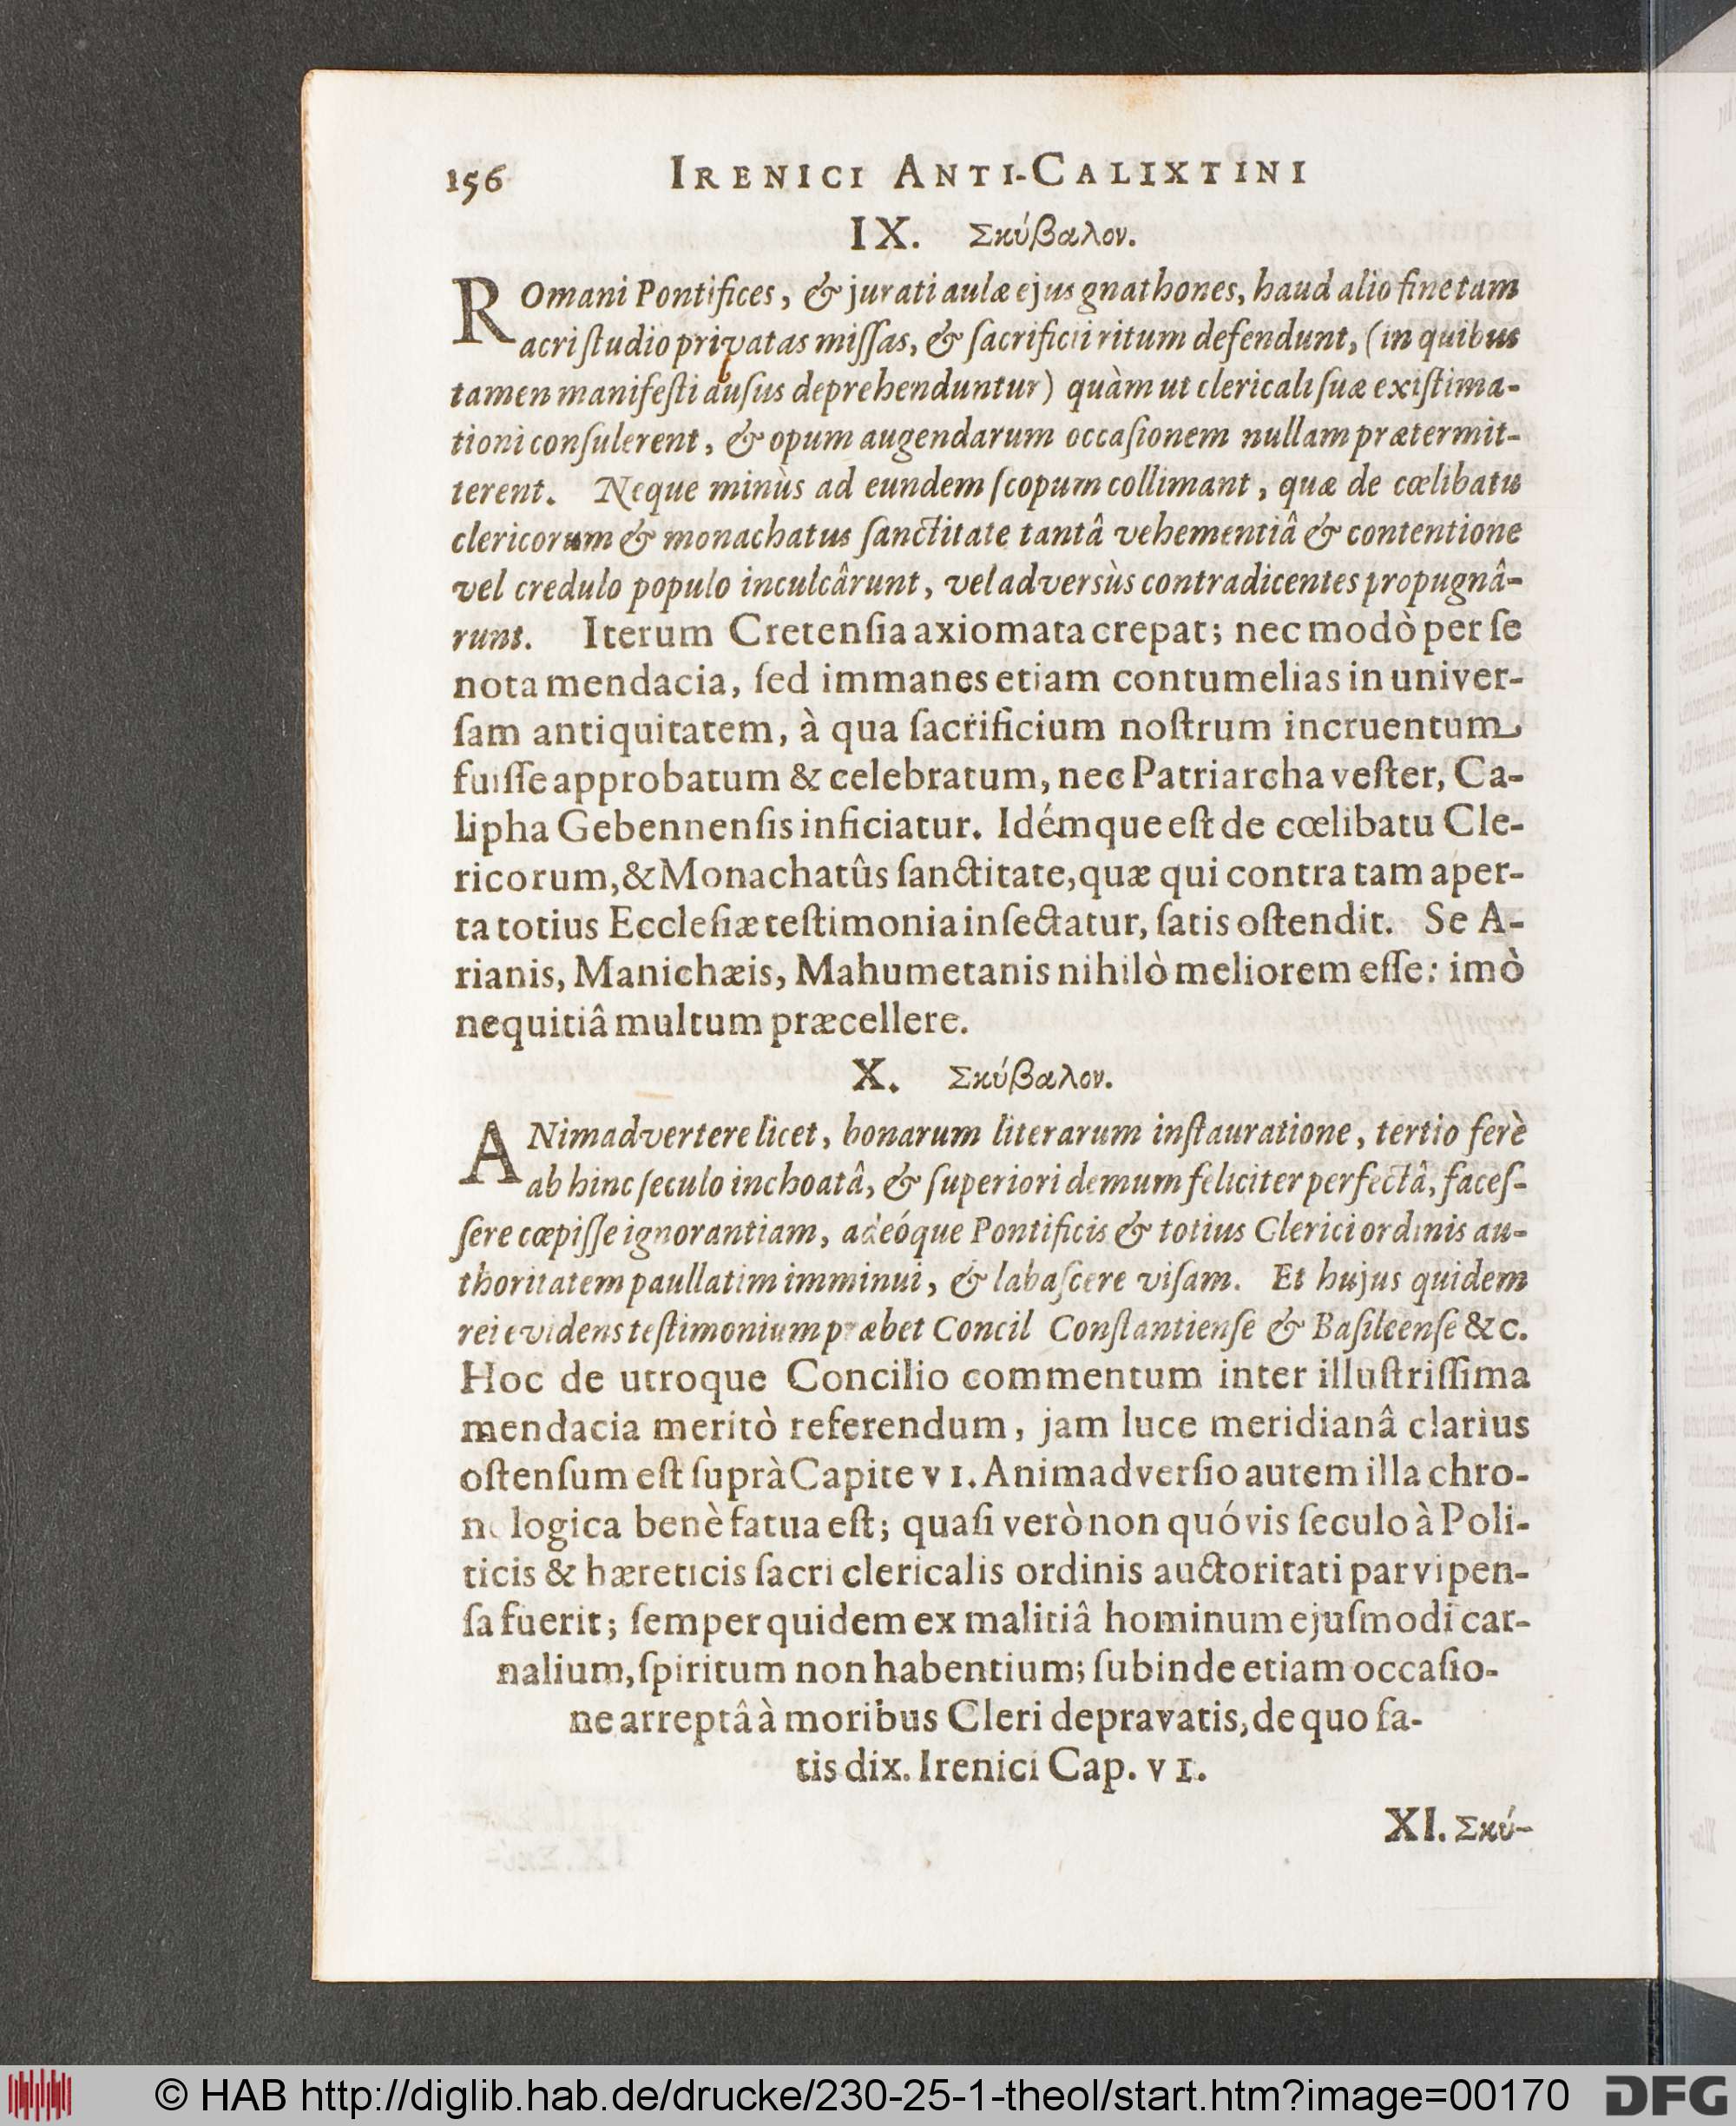 156 IRENICI ANTI-CALIXTINI
IX. Σκύβαλον.
ROmani Pontifices, & jurati aulæ ejus gnathones, haud alio fine tam
acri ſtudio privatas miſſas, & ſacrificii ritum defendunt, (in quibus
tamen manifeſti auſus deprehenduntur) quàm ut clericali ſuæ exiſtima-
tioni conſulerent, & opum augendarum occaſionem nullam prætermit-
terent. Neque minùs ad eundem ſcopum collimant, quæ de cœlibatu
clericorum & monachatus ſanctitate tantâ vehementiâ & contentione
vel credulo populo inculcârunt, vel adversùs contradicentes propugnâ-
runt. Iterum Cretenſia axiomata crepat; nec modò per ſe
nota mendacia, ſed immanes etiam contumelias in univer-
ſam antiquitatem, à qua ſacrificium noſtrum incruentum
fuiſſe approbatum & celebratum, nec Patriarcha veſter, Ca-
lipha Gebennenſis inficiatur. Idémque eſt de cœlibatu Cle-
ricorum, & Monachatûs ſanctitate, quæ qui contra tam aper-
ta totius Eccleſiæ teſtimonia inſectatur, ſatis oſtendit. Se A-
rianis, Manichæis, Mahumetanis nihilò meliorem eſſe: imò
nequitiâ multum præcellere.
X. Σκύβαλον.
ANimadvertere licet, bonarum literarum inſtauratione, tertio ferè
ab hinc ſeculo inchoatâ, & ſuperiori demum feliciter perfectâ, faceſ-
ſere cœpiſſe ignorantiam, adeóque Pontificis & totius Clerici ordinis au-
thoritatem paullatim imminui, & labaſcere viſam. Et hujus quidem
rei evidens teſtimonium præbet Concil Conſtantienſe & Baſileenſe &c.
Hoc de utroque Concilio commentum inter illuſtriſſima
mendacia meritò referendum, jam luce meridianâ clarius
oſtenſum eſt ſuprà Capite VI. Animadverſio autem illa chro-
nologica benè fatua eſt; quaſi verò non quóvis ſeculo à Poli-
ticis & hæreticis ſacri clericalis ordinis auctoritati parvipen-
ſa fuerit; ſemper quidem ex malitiâ hominum ejuſmodi car-
nalium, ſpiritum non habentium; ſubinde etiam occaſio-
ne arreptâ à moribus Cleri depravatis, de quo ſa-
tis dix. Irenici Cap. VI.
XI. Σκύ-
© HAB http://diglib.hab.de/drucke/230-25-1-theol/start.htm?image=00170 DFG